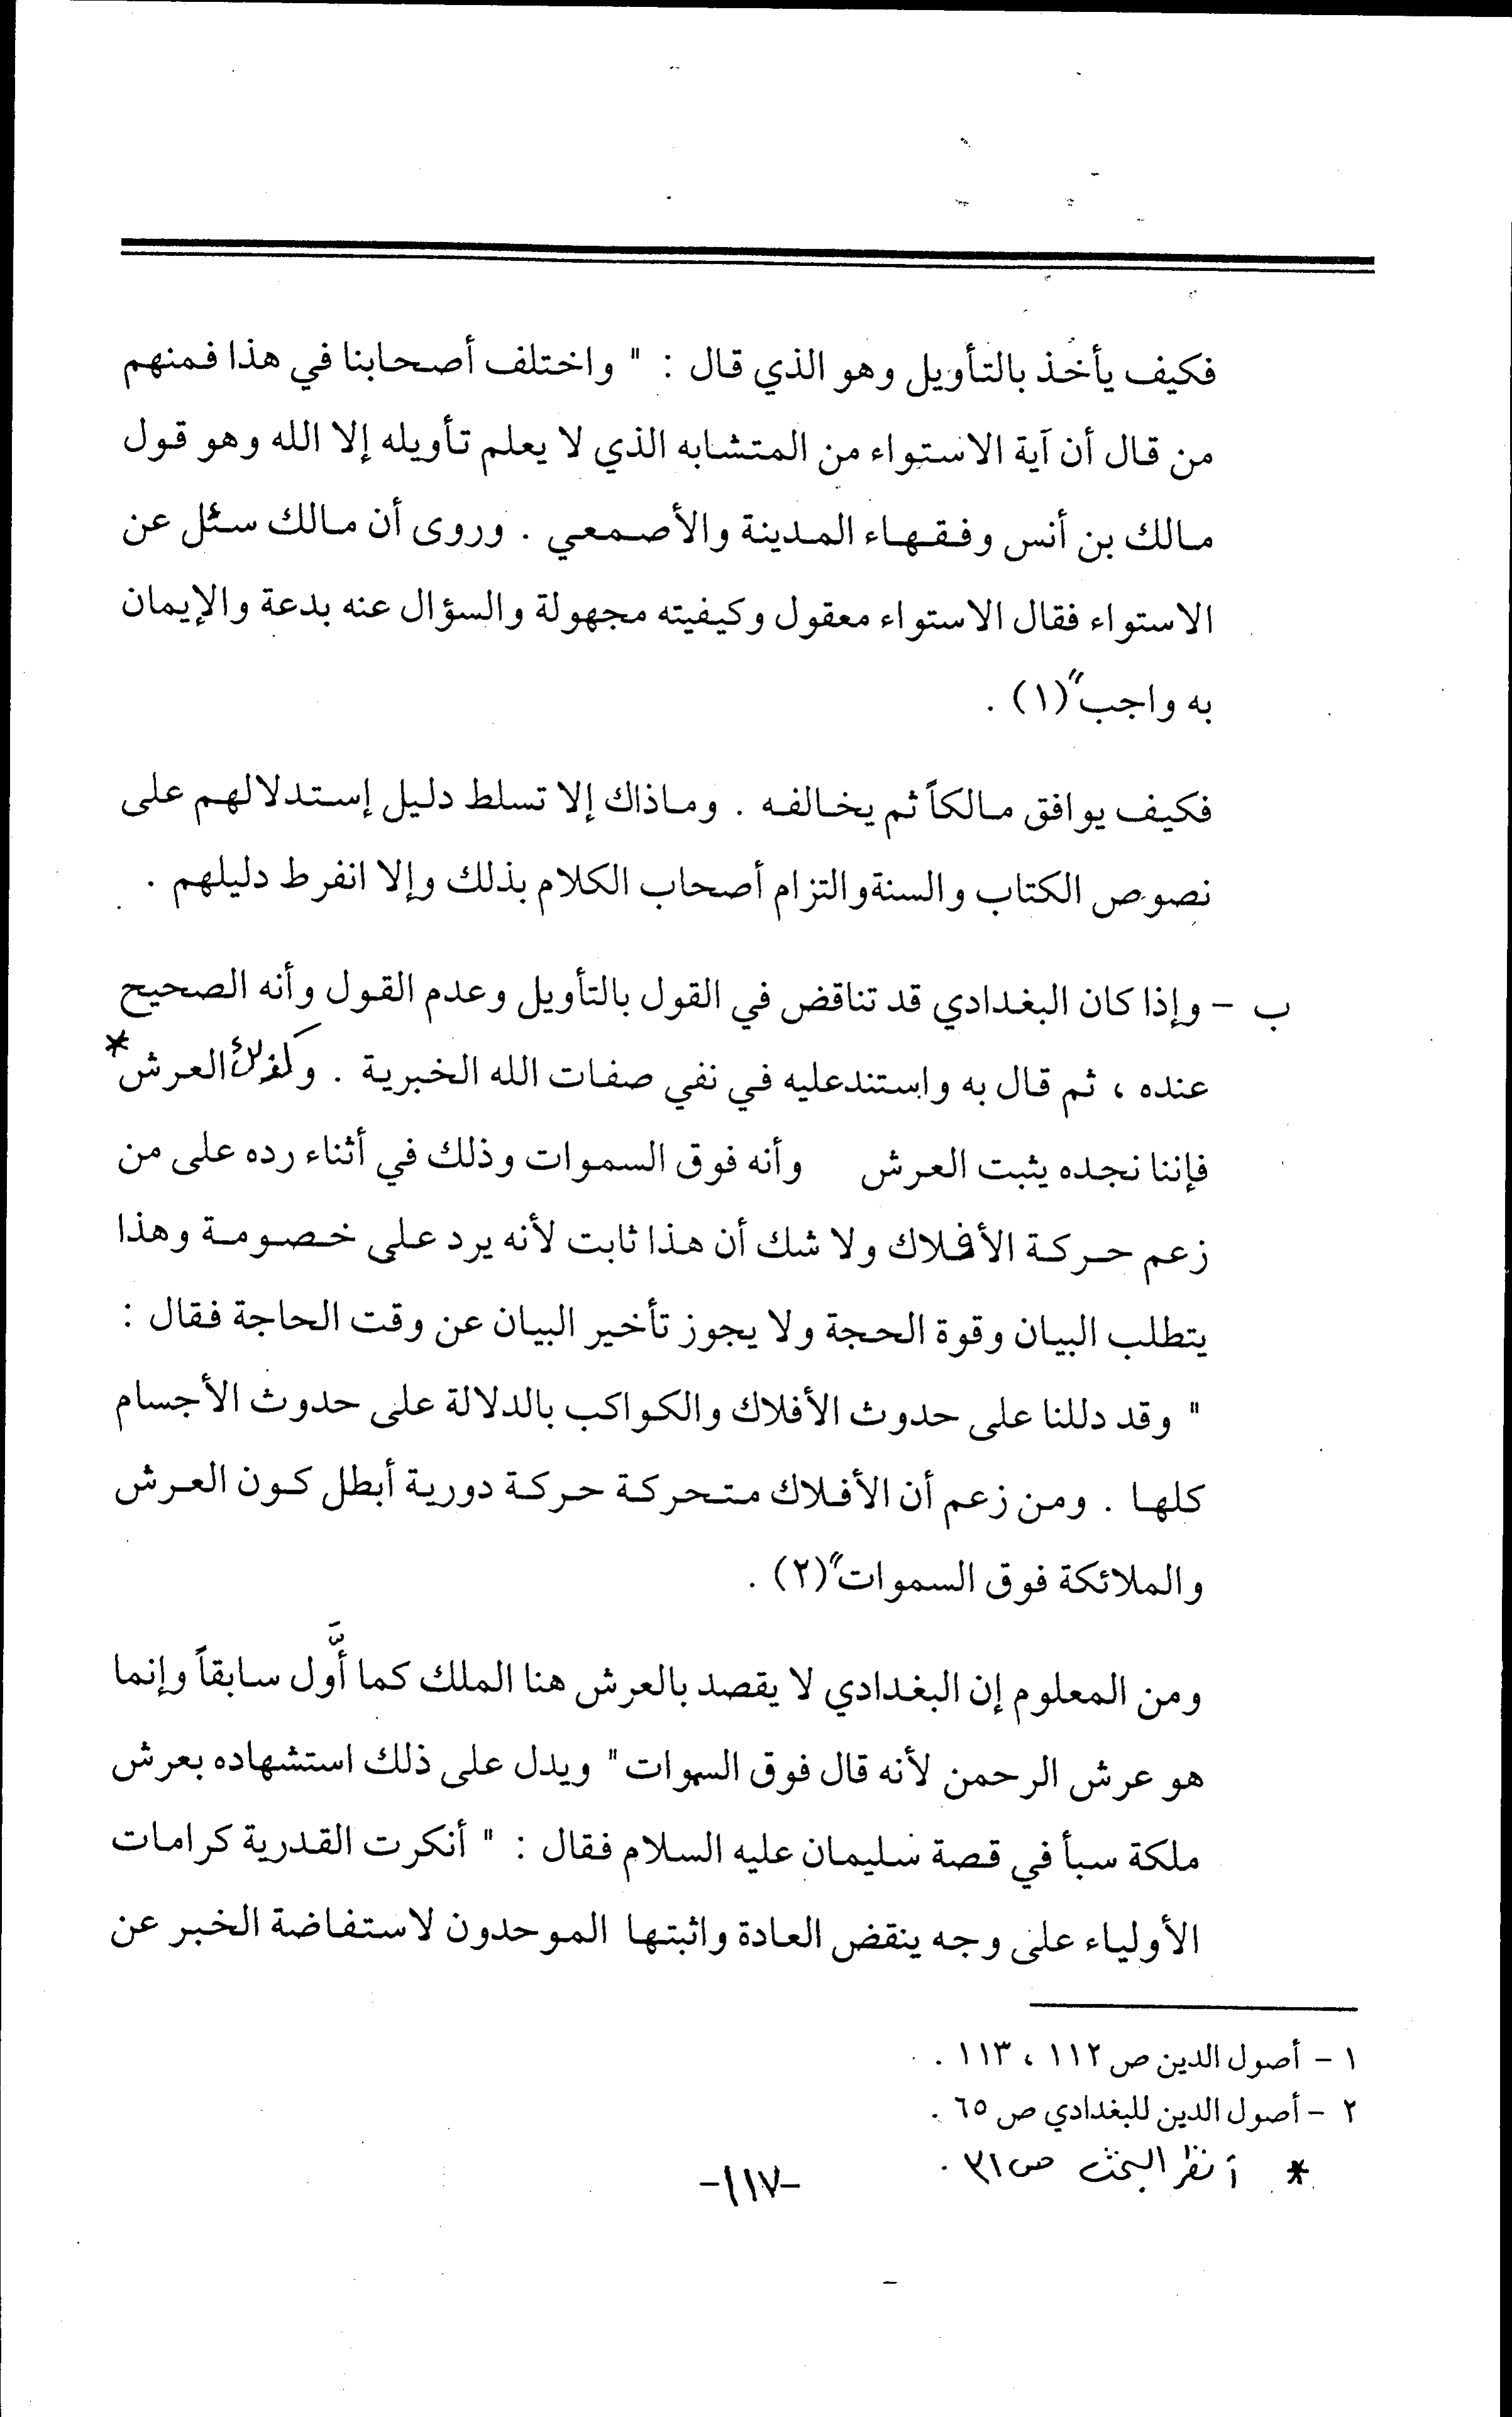 فكيف يأخذ بالتأويل وهو الذي قال : " واختلف أصحابنا في هذا فمنهم
من قال أن آية الاستواء من المتشابه الذي لا يعلم تأويله إلا الله وهو قول
مالك بن أنس وفقهاء المدينة والأصمعي . وروى أن مالك سئل عن
الاستواء فقال الاستواء معقول وكيفيته مجهولة والسؤال عنه بدعة والإيمان
به واجب"(١) .
فكيف يوافق مالكاً ثم يخالفه . وماذاك إلا تسلط دليل إستدلالهم على
نصوص الكتاب والسنةوالتزام أصحاب الكلام بذلك وإلا انفرط دليلهم .
ب - وإذا كان البغدادي قد تناقض في القول بالتأويل وعدم القول وأنه الصحيح
عنده ، ثم قال به واستندعليه في نفي صفات الله الخبرية . وكذلك العرش*
فإننا نجده يثبت العرش وأنه فوق السموات وذلك في أثناء رده على من
زعم حركة الأفلاك ولا شك أن هذا ثابت لأنه يرد على خصومة وهذا
يتطلب البيان وقوة الحجة ولا يجوز تأخير البيان عن وقت الحاجة فقال :
" وقد دللنا على حدوث الأفلاك والكواكب بالدلالة على حدوث الأجسام
كلها . ومن زعم أن الأفلاك متحركة حركة دورية أبطل كون العرش
والملائكة فوق السموات"(٢) .
ومن المعلوم إن البغدادي لا يقصد بالعرش هنا الملك كما أَّول سابقاً وإنما
هو عرش الرحمن لأنه قال فوق السموات" ويدل على ذلك استشهاده بعرش
ملكة سبأ في قصة سليمان عليه السلام فقال : " أنكرت القدرية كرامات
الأولياء على وجه ينقض العادة واثبتها الموحدون لاستفاضة الخبر عن
١ - أصول الدين ص ١١٢ ، ١١٣ .
٢ - أصول الدين للبغدادي ص ٦٥ .
* أنظر البحث ص ٣١ .
-١١٧-